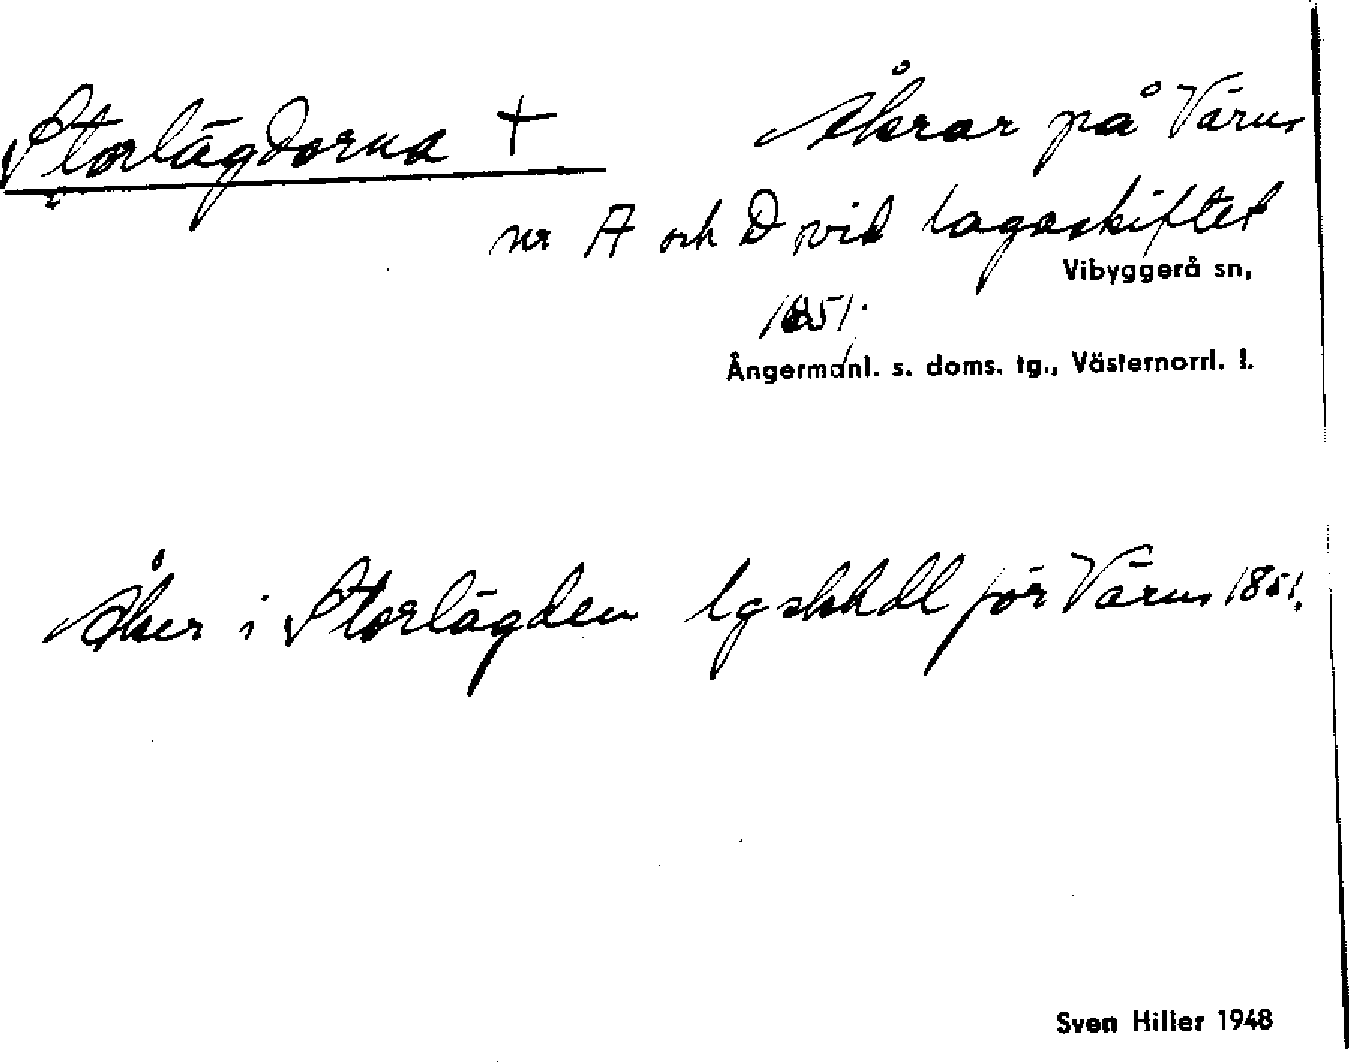 Storlägdorna + Åkrar på Värns
nr A och D vid lagaskiftet
Vibyggerå sn,
1851.
Ångermanl. s. doms. tg., Västernorrl. l.
Åker i Storlägden lgskhdl för Värns 1851.
Sven Hiller 1948